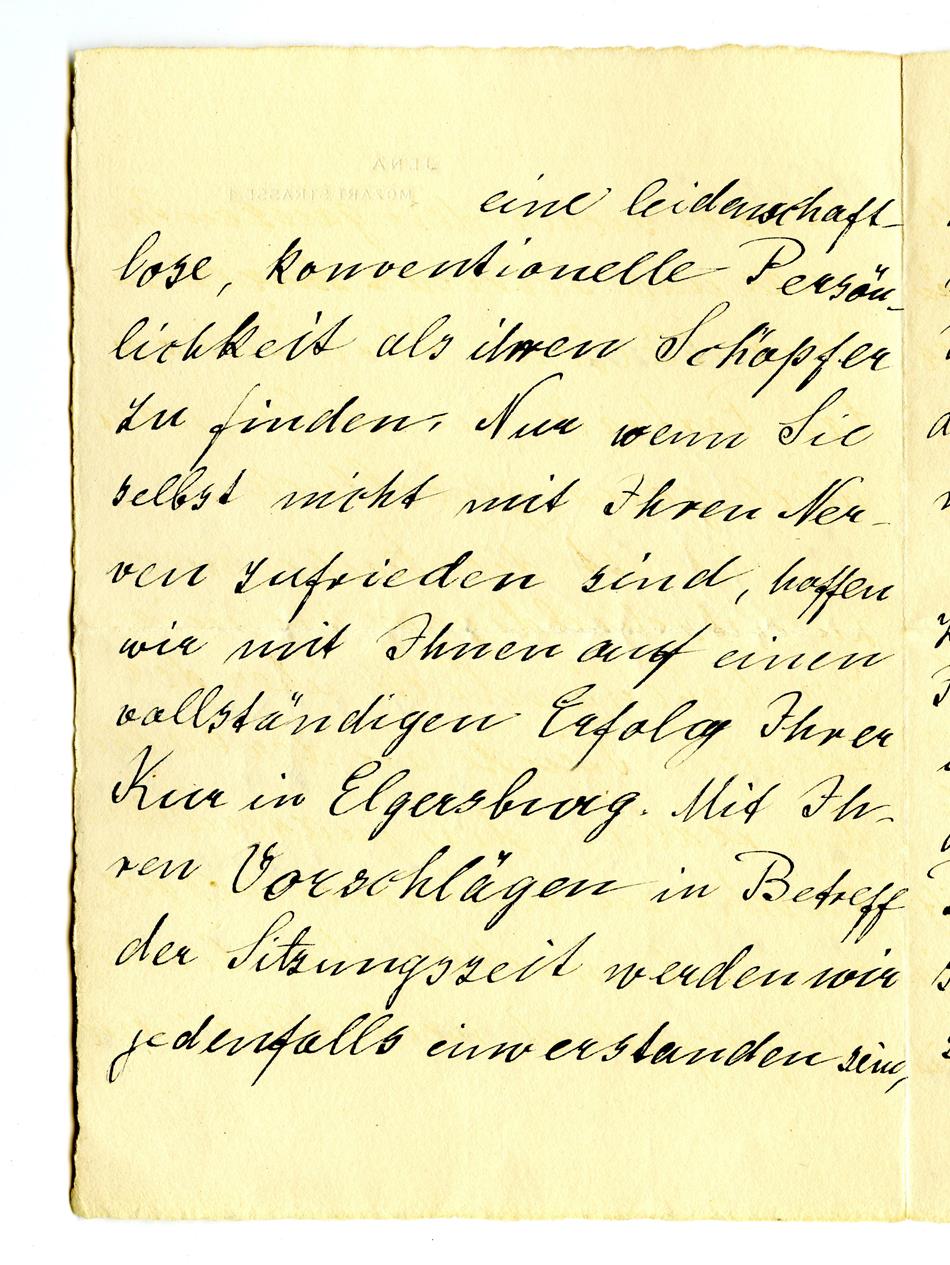 eine leidenschaft-
lose, konventionelle Persön-
lichkeit als ihren Schöpfer
zu finden. Nur wenn Sie
selbst nicht mit Ihren Ner-
ven zufrieden sind, hoffen
wir mit Ihnen auf einen
vollständigen Erfolg Ihrer
Kur in Elgersburg. Mit Ih-
ren Vorschlägen in Betreff
der Sitzungszeit werden wir
jedenfalls einverstanden sein,